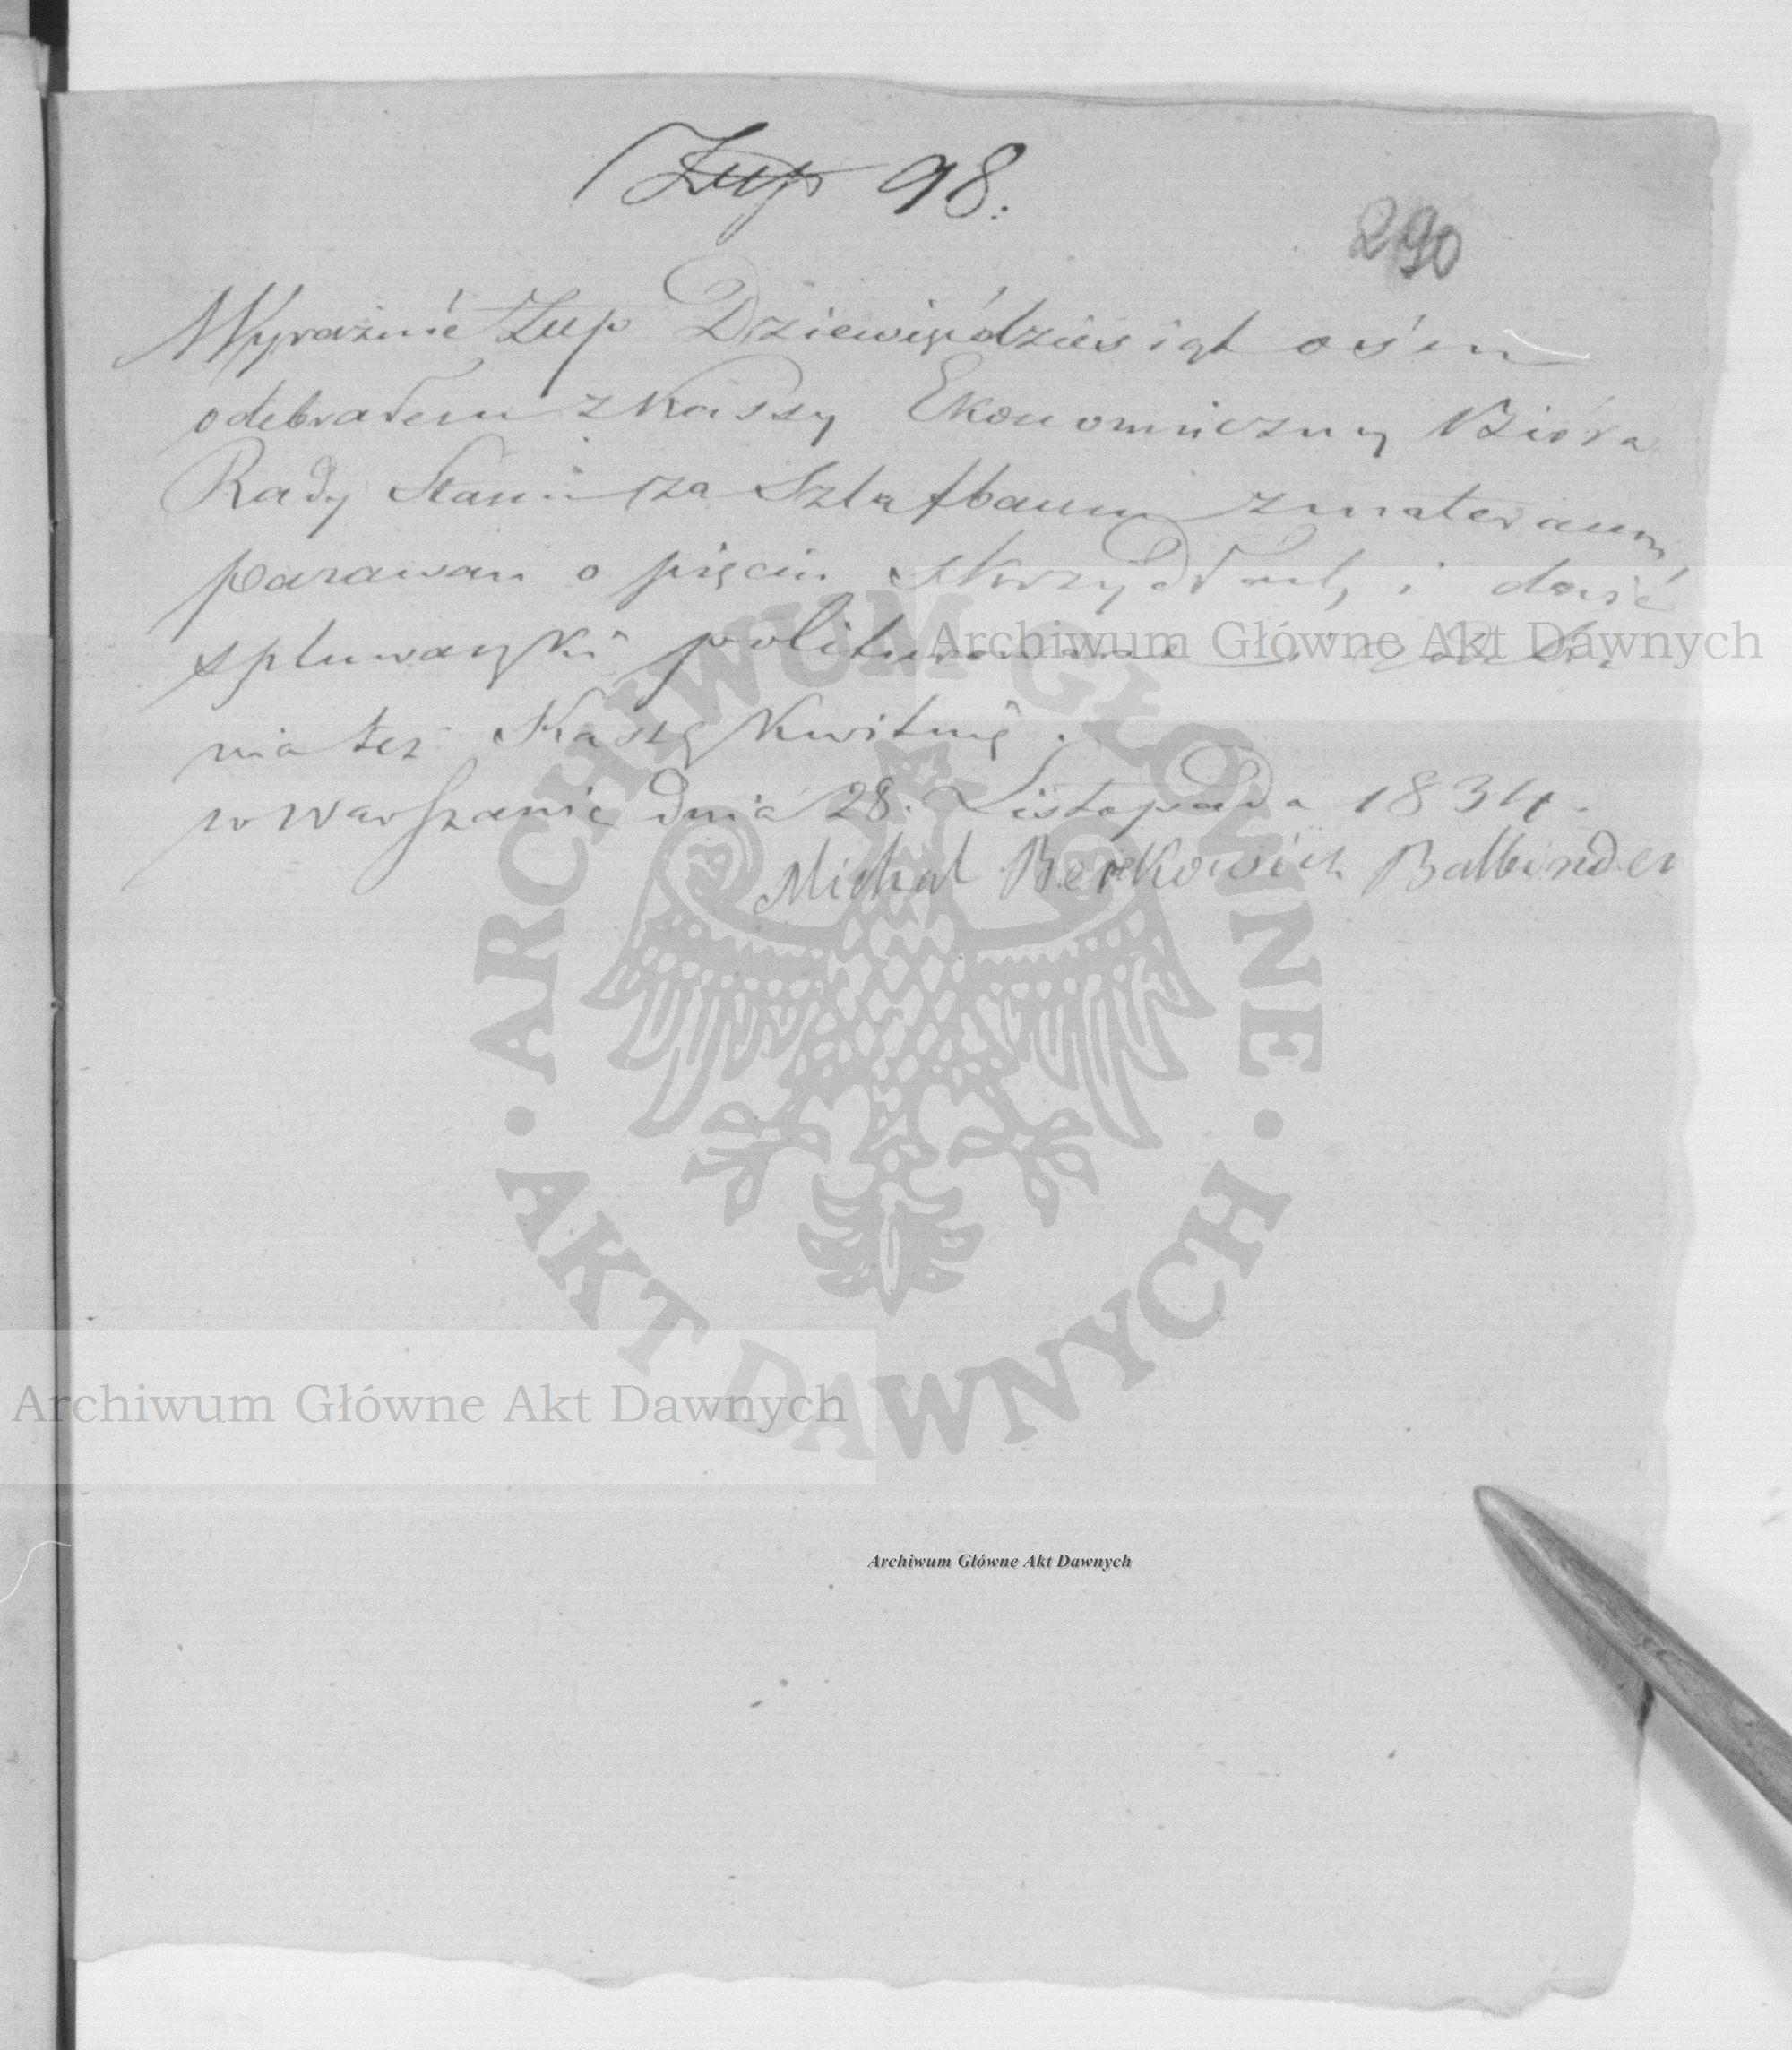 Złp 98.
290
Wyraźnie Złp Dziewięćdziesiąt ośm
odebrałem z Kassy Ekonomiczney Bióra
Rady Stanu za Szlafbank z materacem
parawan o pięciu skrzydłach i dwie
spluwaczki politurowane i z odebra
nia tez Kassę Kwituię.
w Warszawie dnia 28. Listopada 1834.
Michal Berkowicz Balbinder
ARCHIWUM GŁÓWNE
AKT DAWNYCH
Archiwum Główne Akt Dawnych
Archiwum Główne Akt Dawnych
Archiwum Główne Akt Dawnych